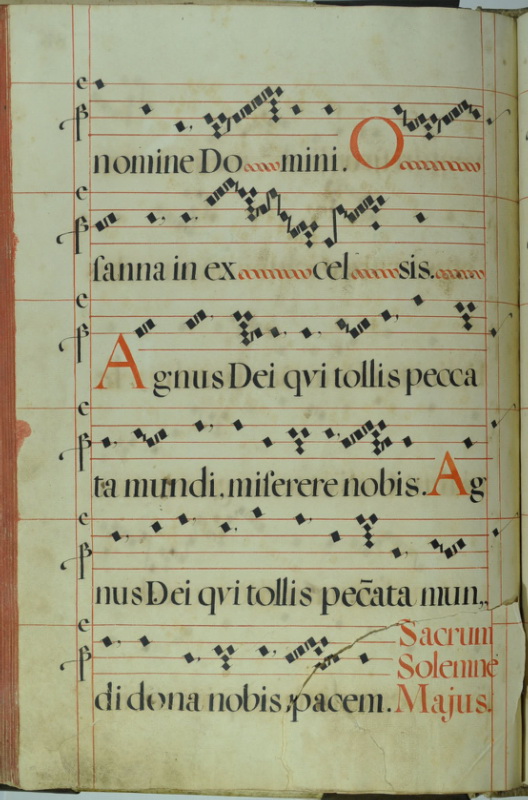 nomine Domini. O
ſanna in excelsis.
Agnus Dei qvi tollis pecca
ta mundi, miſerere nobis. Ag
nus Dei qvi tollis pec̃ata mun„
Sacrum
Solemne
di dona nobis, pacem. Majus.